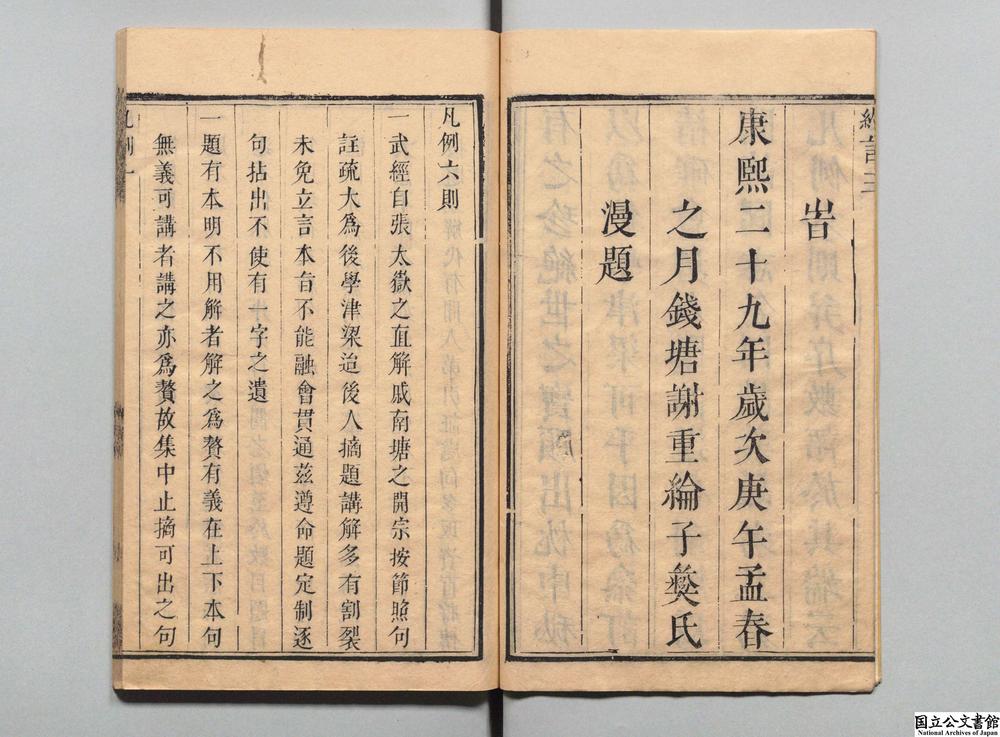 旹
康熙二十九年歲次庚午孟春
之月錢塘謝重綸子燮氏
漫題
凡例六則
一武經自張太嶽之直解戚南塘之開宗按節照句
註疏大爲後學津梁迨後人摘題講解多有割裂
未免立言本旨不能融會貫通茲遵命題定制逐
句拈出不使有一字之遺
一題有本明不用解者解之爲贅有義在上下本句
無義可講者講之亦爲贅故集中止摘可出之句
凡例一
国立公文書館
National Archives of Japan